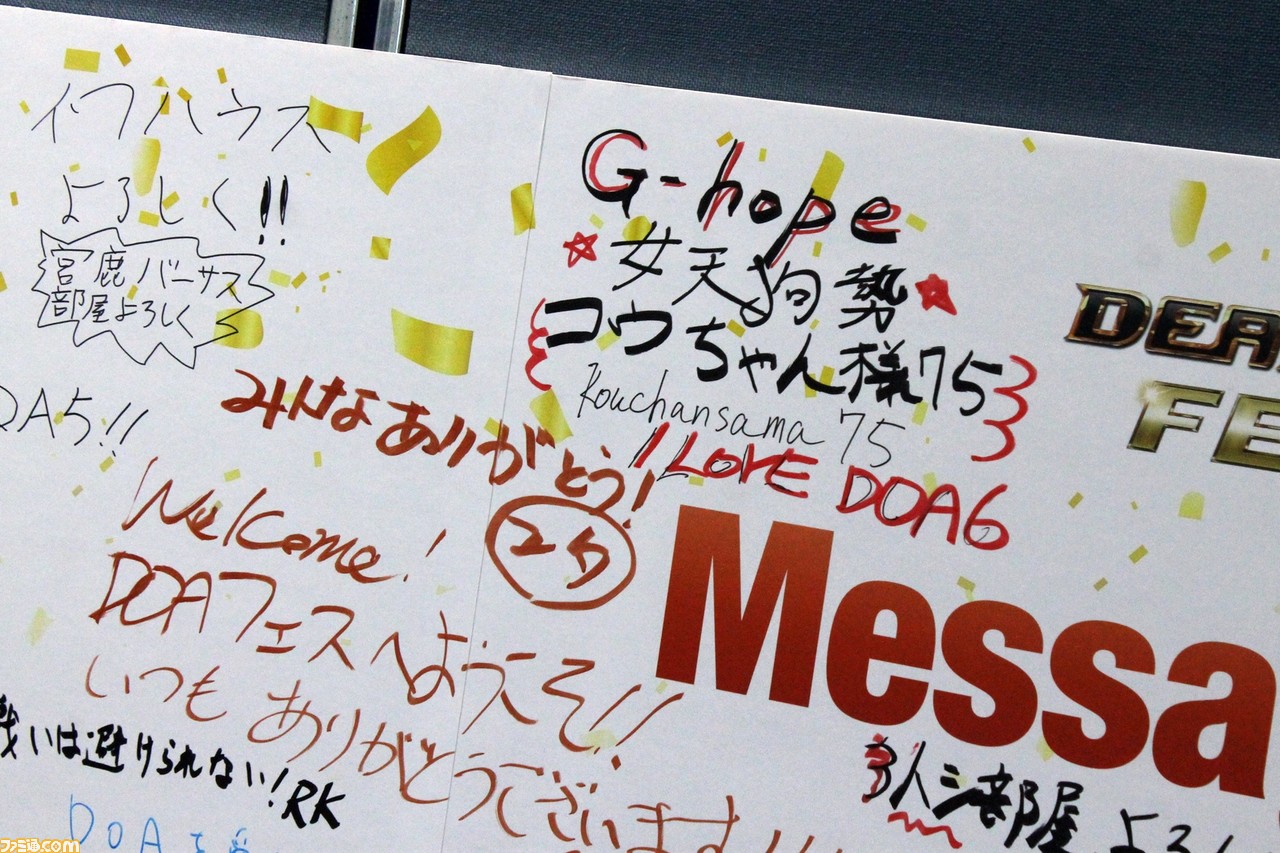 イフハウス
よろしく!!
宮鹿バーサス
部屋よろしく
OA5!!
G-hope
☆女天狗勢★
コウちゃん様75
Kouchansama 75
I LOVE DOA6
DEA
FE
みんなありがとう!
Messa
Welcome!
DOAフェスへようこそ!!
いつもありがとうございます!!!
戦いは避けられない! RK
DOAを
3人シ部屋よろ
ファミ通.com